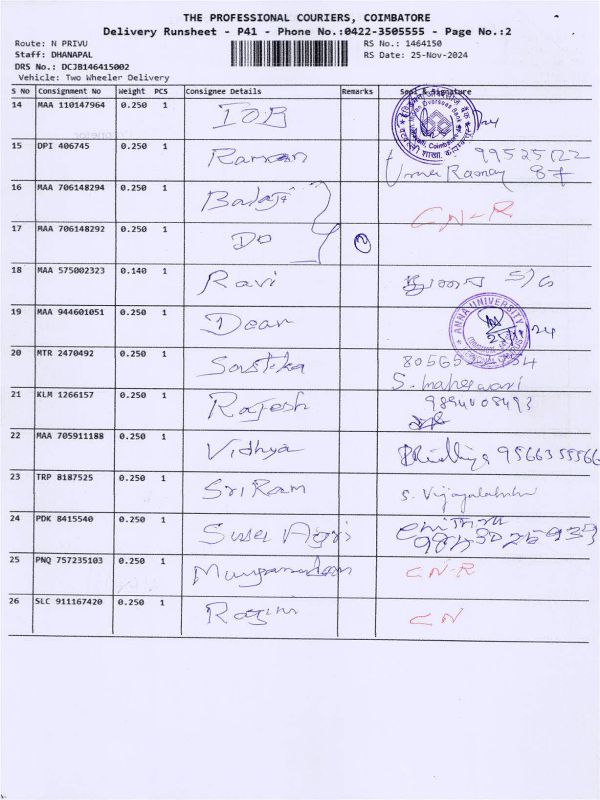 THE PROFESSIONAL COURIERS, COIMBATORE
Delivery Runsheet - P41 - Phone No.:0422-3505555 - Page No.:2
Route: N PRIVU
RS No.: 1464150
Staff: DHANAPAL
RS Date: 25-Nov-2024
DRS No.: DCJB146415002
Vehicle: Two Wheeler Delivery
S No Consignment No Weight PCS Consignee Details Remarks Seal & Signature
14 MAA 110147964 0.250 1 IOB
15 DPI 406745 0.250 1 Raman
16 MAA 706148294 0.250 1 Balaji CN-R
17 MAA 706148292 0.250 1 Do 2
18 MAA 575002323 0.140 1 Ravi
19 MAA 944601051 0.250 1 Dean ANNA UNIVERSITY
20 MTR 2470492 0.250 1 S. maheswari
21 KLM 1266157 0.250 1 Rajesh 9894008493
22 MAA 705911188 0.250 1 Vidhya 9566355566
23 TRP 8187525 0.250 1 Sri Ram S. Vijayalakshmi
24 PDK 8415540 0.250 1
25 PNQ 757235103 0.250 1 CN-R
26 SLC 911167420 0.250 1 CN